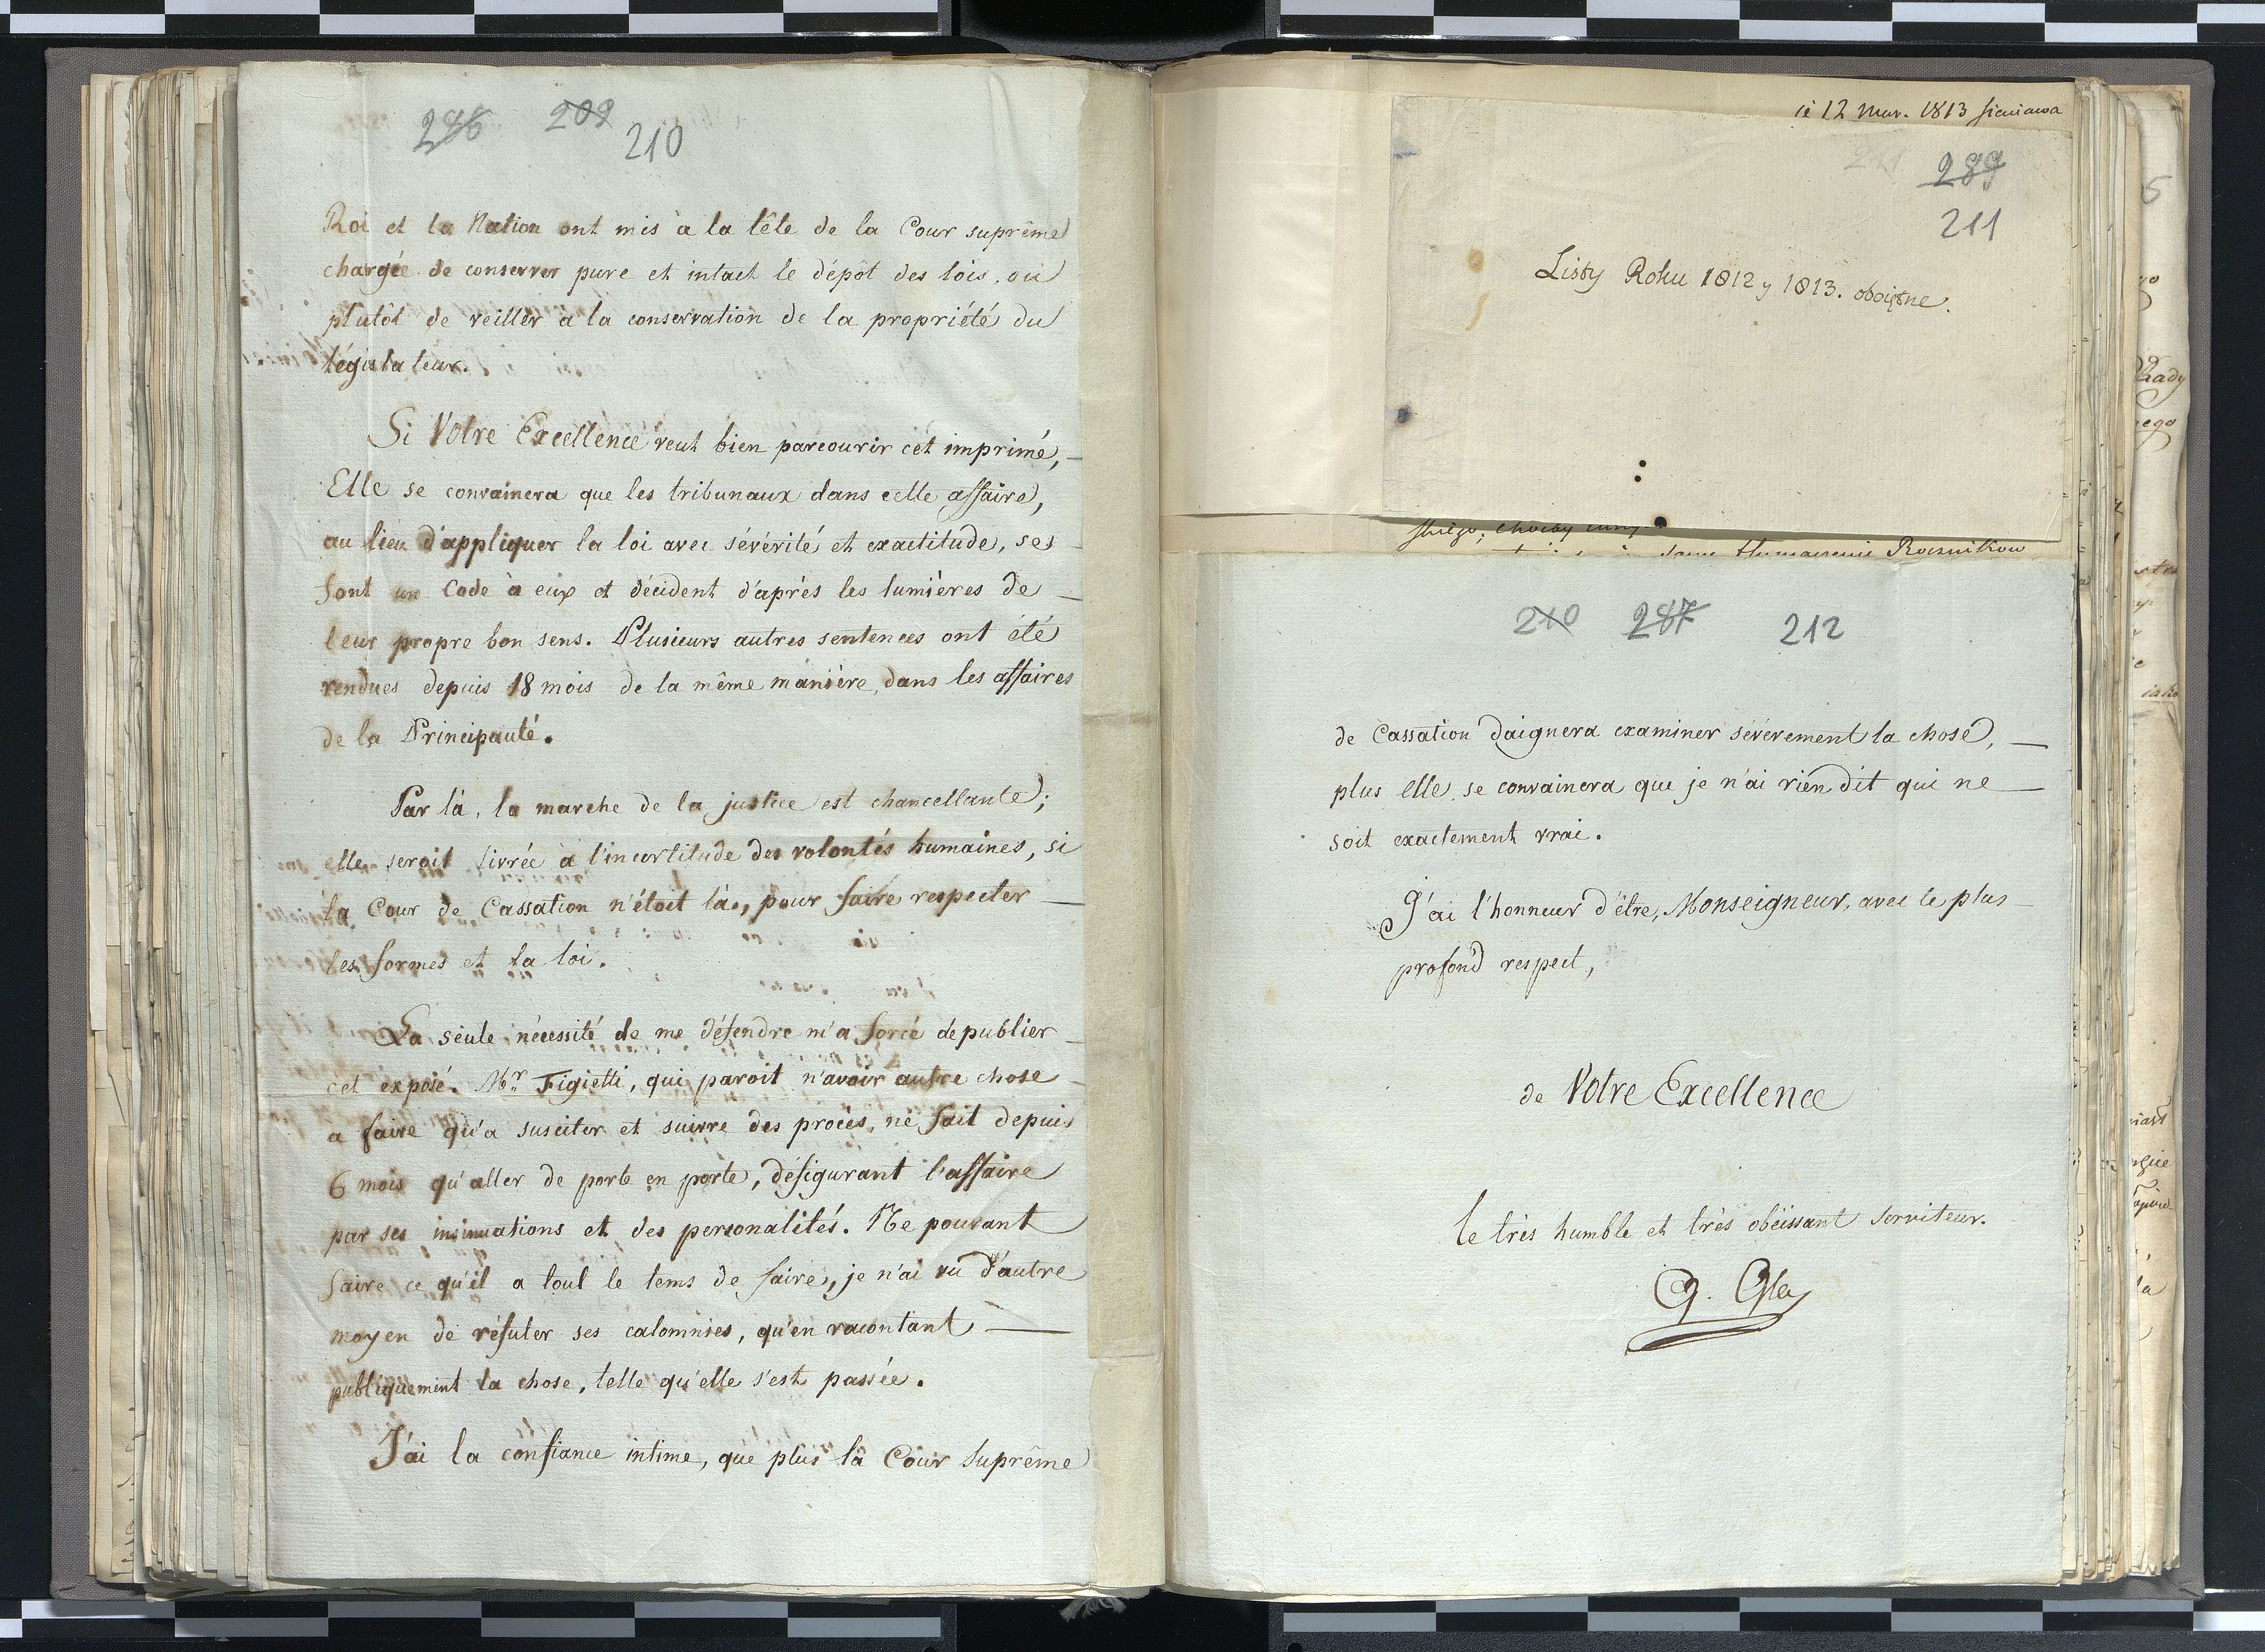 286 209
210
Roi et la Nation ont mis à la tête de la Cour suprême
chargée de conserver pure et intact le dépôt des lois, ou
plutôt de veiller à la conservation de la propriété du
législateur.
Si Votre Excellence veut bien parcourir cet imprimé,
Elle se convainera que les tribunaux dans cette affaire,
au lieu d'appliquer la loi avec sévérité et exactitude, se
font un Code à eux et décident d'après les lumières de
leur propre bon sens. Plusieurs autres sentences ont été
rendues depuis 18 mois de la même manière, dans les affaires
de la Principauté.
Par là, la marche de la justice est chancellante;
elle seroit livrée à l'incertitude des volontés humaines, si
la Cour de Cassation n'étoit là, pour faire respecter
les formes et la loi.
La seule nécessité de me défendre m'a forcé de publier
cet exposé. Mr. Figietti, qui paroit n'avoir autre chose
a faire qu'a susciter et suivre des procès, ne fait depuis
6 mois qu'aller de porte en porte, défigurant l'affaire
par ses insinuations et des personalités. Ne pouvant
faire ce qu'il a tout le tems de faire, je n'ai vu d'autre
moyen de réfuter ses calomnies, qu'en racontant
publiquement la chose, telle qu'elle s'est passée.
J'ai la confiance intime, que plus la Cour Suprême
12 Mar. 1813 Sieniawa
289
211
Listy Roku 1812 y 1813. oboiętne.
210 287 212
de Cassation daignera examiner sévèrement la chose,
plus elle se convainera que je n'ai rien dit qui ne
soit exactement vrai.
J'ai l'honneur d'être, Monseigneur, avec le plus
profond respect,
de Votre Excellence
le très humble et très obéissant serviteur.